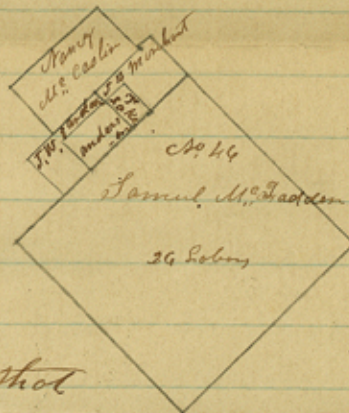 Nancy
McCaslin
J W Merchant
J. W.
anders
on
No 46
Samuel McFadden
26 Labors
that